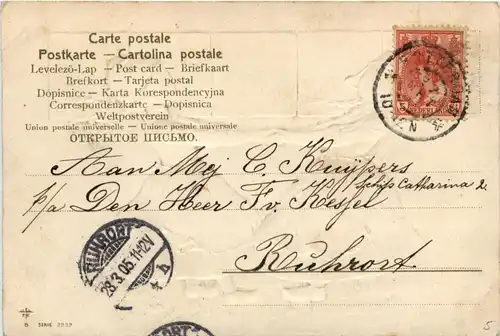 Carte postale
Postkarte — Cartolina postale
Levelező-Lap — Post card — Briefkaart
Brefkort — Tarjeta postal
Dopisnice — Karta Korespondencyjna
Correspondenzkarte — Dopisnica
Weltpostverein
Union postale universelle — Unione postale universale
ОТКРЫТОЕ ПИСЬМО.
Aan Mej C. Kuijpers
Schip Catharina 2
p/a Den Heer Fv. Kessel
Ruhrort
RUHRORT
28.3.05.11-12V
RUHRORT
SERIE 2232
5